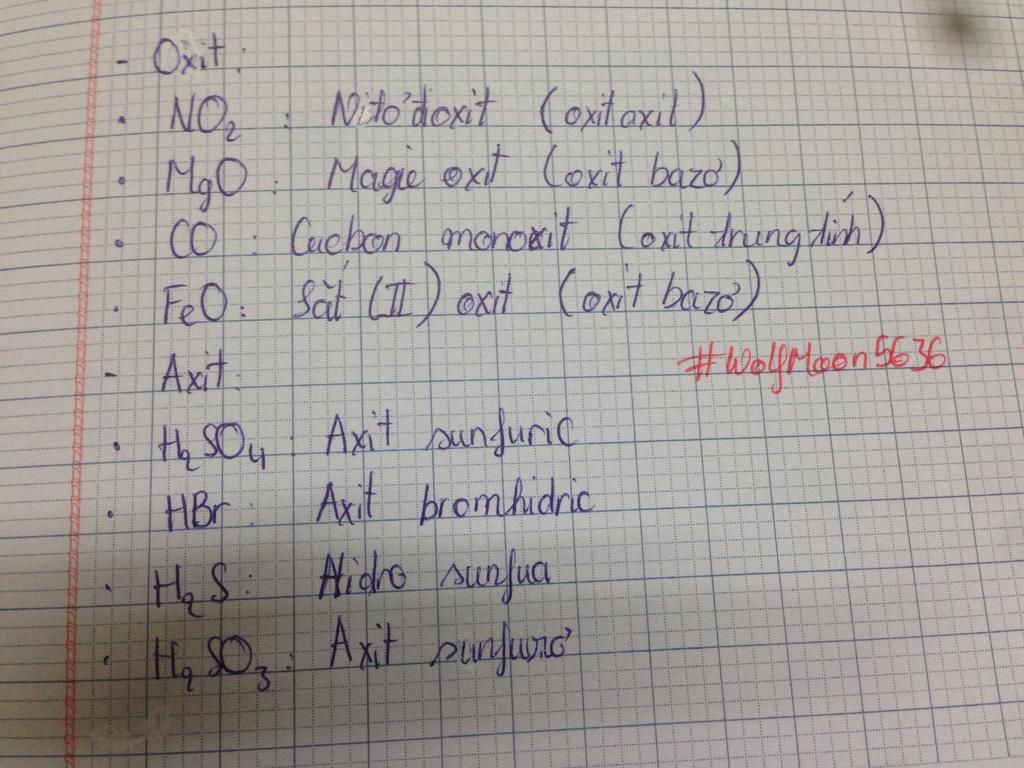 - Oxit:
• NO₂ : Nitơ đioxit (oxit axit)
• MgO : Magie oxit (oxit bazơ)
• CO : Cacbon monoxit (oxit trung tính)
• FeO : Sắt (II) oxit (oxit bazơ)
- Axit: #WolfMoon5636
• H₂SO₄ : Axit sunfuric
• HBr : Axit bromhidric
• H₂S : Hidro sunfua
• H₂SO₃ : Axit sunfurơ